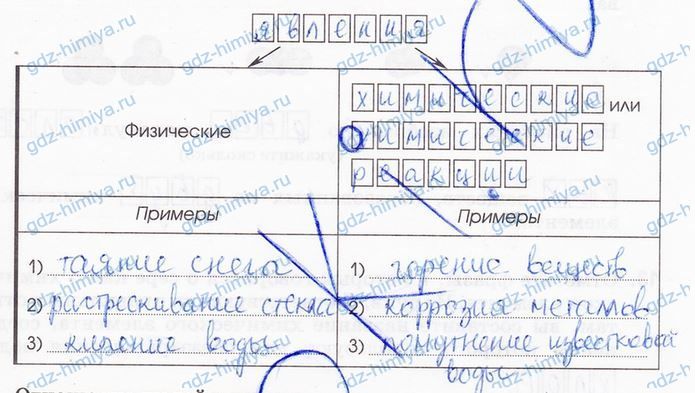 явления
Физические
химические или
химические
реакции
Примеры
Примеры
1) таяние снега
2) растрескивание стекла
3) кипение воды
1) горение веществ
2) коррозия металлов
3) помутнение известковой
воды
gdz-himiya.ru